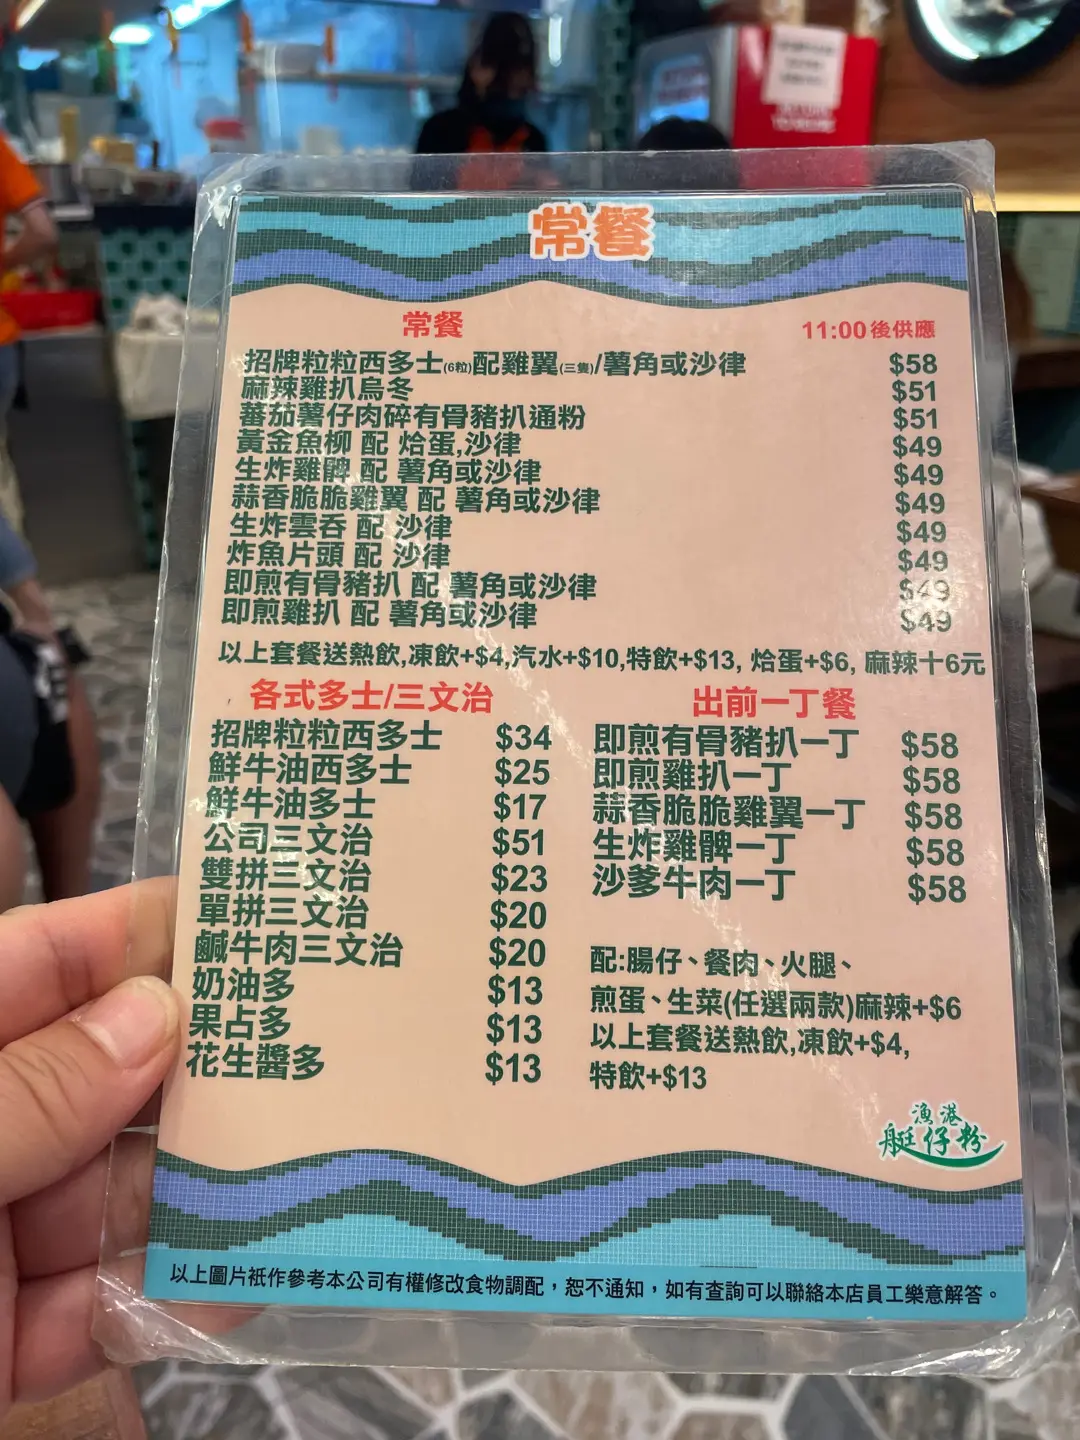 常餐
常餐 11:00後供應
招牌粒粒西多士(6粒)配雞翼(三隻)/薯角或沙律 $58
麻辣雞扒烏冬 $51
蕃茄薯仔肉碎有骨豬扒通粉 $51
黃金魚柳 配 烚蛋,沙律 $49
生炸雞髀 配 薯角或沙律 $49
蒜香脆脆雞翼 配 薯角或沙律 $49
生炸雲吞 配 沙律 $49
炸魚片頭 配 沙律 $49
即煎有骨豬扒 配 薯角或沙律 $49
即煎雞扒 配 薯角或沙律 $49
以上套餐送熱飲,凍飲+$4,汽水+$10,特飲+$13, 烚蛋+$6, 麻辣十6元
各式多士/三文治
招牌粒粒西多士 $34
鮮牛油西多士 $25
鮮牛油多士 $17
公司三文治 $51
雙拼三文治 $23
單拼三文治 $20
鹹牛肉三文治 $20
奶油多 $13
果占多 $13
花生醬多 $13
出前一丁餐
即煎有骨豬扒一丁 $58
即煎雞扒一丁 $58
蒜香脆脆雞翼一丁 $58
生炸雞髀一丁 $58
沙爹牛肉一丁 $58
配:腸仔、餐肉、火腿、
煎蛋、生菜(任選兩款)麻辣+$6
以上套餐送熱飲,凍飲+$4,
特飲+$13
漁港
艇仔粉
以上圖片衹作參考本公司有權修改食物調配，恕不通知，如有查詢可以聯絡本店員工樂意解答。